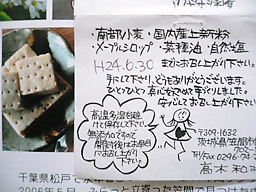 ・南部小麦・国内産上新粉
・メープルシロップ・菜種油・自然塩
H24.6.30 までにお召し上がり下さい。
手にして下さり、どうもありがとうございます。
ひとつひとつ真心をこめて手作りしました。
安心してお召し上がり下さい。
高温多湿を避
けて保存して下さい。
無添加ですので
開封後はお早目
にお召し上がり
下さい。
〒309-1632
茨城県笠間市
Tel/Fax 0296-74-2
高木和
千葉県松戸で
2006年5月